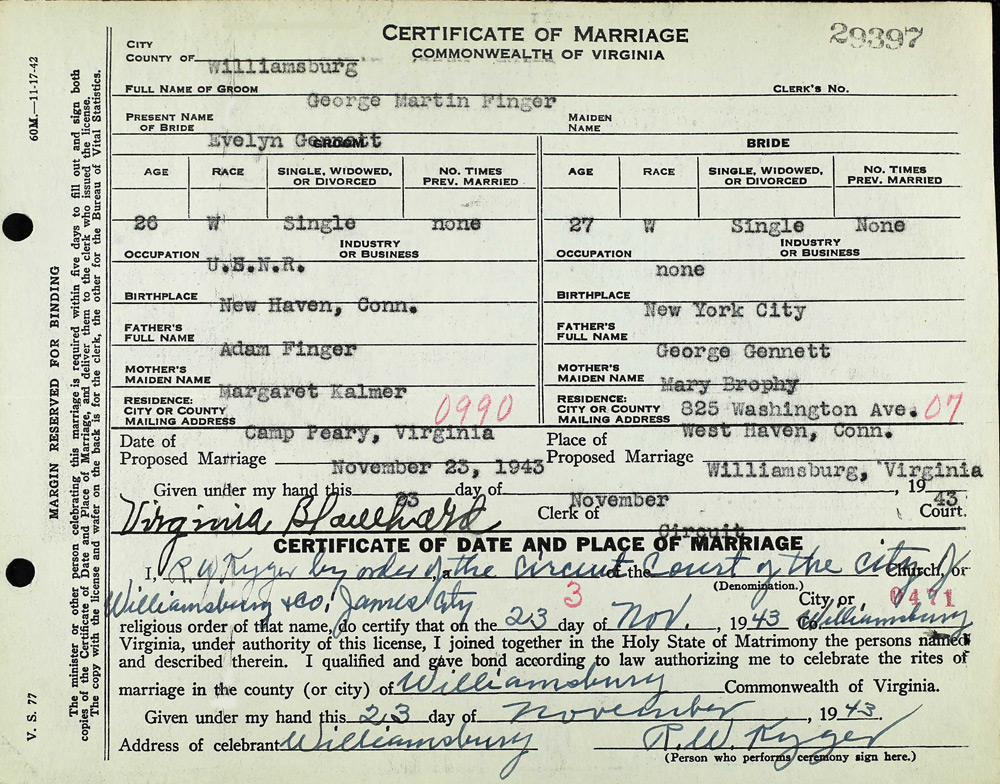 CERTIFICATE OF MARRIAGE
29397
COMMONWEALTH OF VIRGINIA
CITY
COUNTY OF Williamsburg
FULL NAME OF GROOM George Martin Finger CLERK'S NO.
PRESENT NAME OF BRIDE Evelyn Gennett MAIDEN NAME
GROOM BRIDE
AGE RACE SINGLE, WIDOWED, OR DIVORCED NO. TIMES PREV. MARRIED AGE RACE SINGLE, WIDOWED, OR DIVORCED NO. TIMES PREV. MARRIED
26 W Single none 27 W Single None
OCCUPATION U.S.N.R. INDUSTRY OR BUSINESS OCCUPATION none INDUSTRY OR BUSINESS
BIRTHPLACE New Haven, Conn. BIRTHPLACE New York City
FATHER'S FULL NAME Adam Finger FATHER'S FULL NAME George Gennett
MOTHER'S MAIDEN NAME Margaret Kalmer MOTHER'S MAIDEN NAME Mary Brophy
RESIDENCE: CITY OR COUNTY MAILING ADDRESS 0990 Camp Peary, Virginia RESIDENCE: CITY OR COUNTY MAILING ADDRESS 825 Washington Ave. 07 West Haven, Conn.
Date of Proposed Marriage November 23, 1943 Place of Proposed Marriage Williamsburg, Virginia
Given under my hand this 23 day of November, 19 43
Virginia Clerk of Circuit Court.
CERTIFICATE OF DATE AND PLACE OF MARRIAGE
I, R W Kyger by order, a of the Circuit of the Court of the City of Church, or
(Denomination.)
Williamsburg & Co. James City 3 City or 0471
religious order of that name, do certify that on the 23 day of Nov., 1943 Co. Williamsburg
Virginia, under authority of this license, I joined together in the Holy State of Matrimony the persons named
and described therein. I qualified and gave bond according to law authorizing me to celebrate the rites of
marriage in the county (or city) of Williamsburg Commonwealth of Virginia.
Given under my hand this 23 day of November, 1943.
Address of celebrant Williamsburg R. W. Kyger
(Person who performs ceremony sign here.)
60M.—11-17-42
MARGIN RESERVED FOR BINDING
V. S. 77
The minister or other person celebrating this marriage is required within five days to fill out and sign both
copies of the Certificate of Date and Place of Marriage, and deliver them to the clerk who issued the license.
The copy with the license and wafer on the back is for the clerk, the other for the Bureau of Vital Statistics.